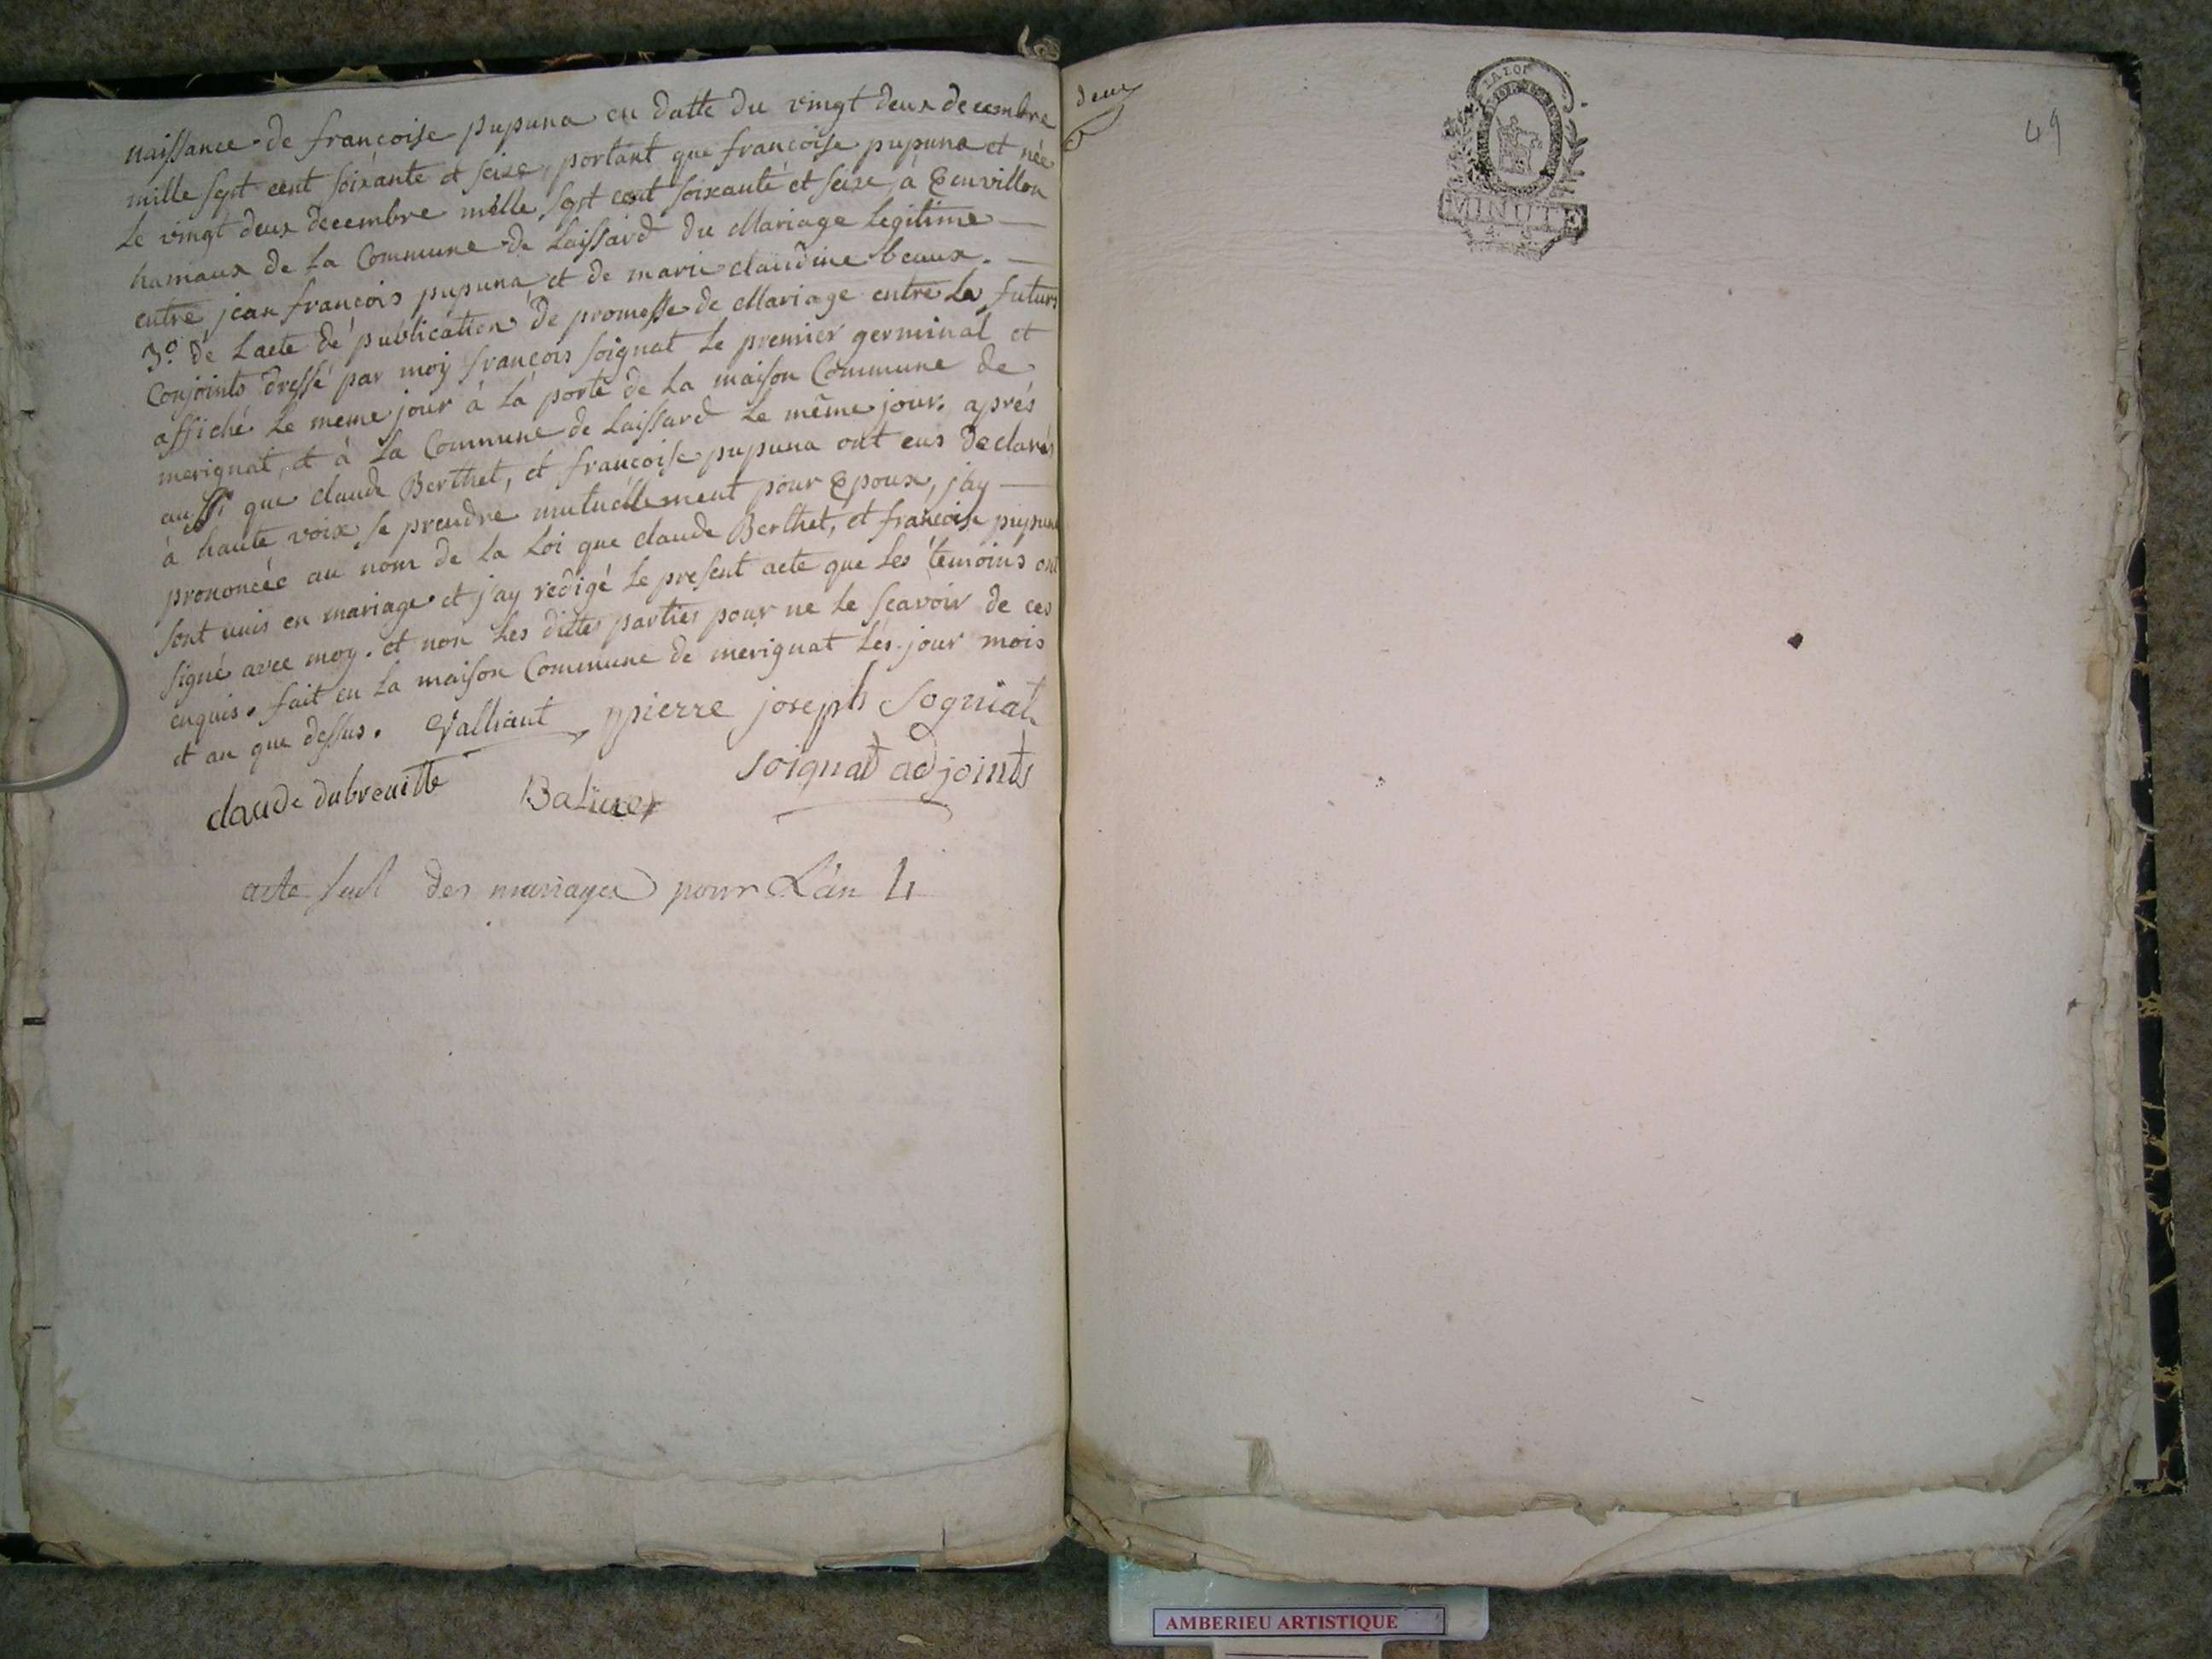 naissance de françoise pupuna en datte du vingt deux decembre
mille sept cent soixante et seize, portant que françoise pupuna et née
le vingt deux decembre mille sept cent soixante et seize, à Eenvillon
hamaux de la Commune de Laissard du Mariage Legitime
entre jean françois pupuna, et de marie claudine beaux.
3º. de Lacte de publication de promesse de Mariage entre les futurs
Conjoints dressé par moy françois soignat le premier germinal et
affiché le meme jour à la porte de la maison Commune de
merignat, et à la Commune de Laissard le même jour, après
aussi que claude Berthet, et françoise pupuna ont eus declarés
à haute voix se prendre mutuellement pour Epoux, j'ay
prononcée au nom de la Loi que claude Berthet, et françoise pupuna
sont unis en mariage et j'ay redigé le present acte que les temoins ont
signé avec moy. et non les dites parties pour ne le scavoir de ces
enquis. fait en la maison Commune de merignat les jour mois
et an que dessus. Valliant ppierre joseph Sogniat
soignat adjoints
claude dubreuille
acte seul des mariages pour L'an 4
deux
LA LOI
49
MINUTE
AMBERIEU ARTISTIQUE